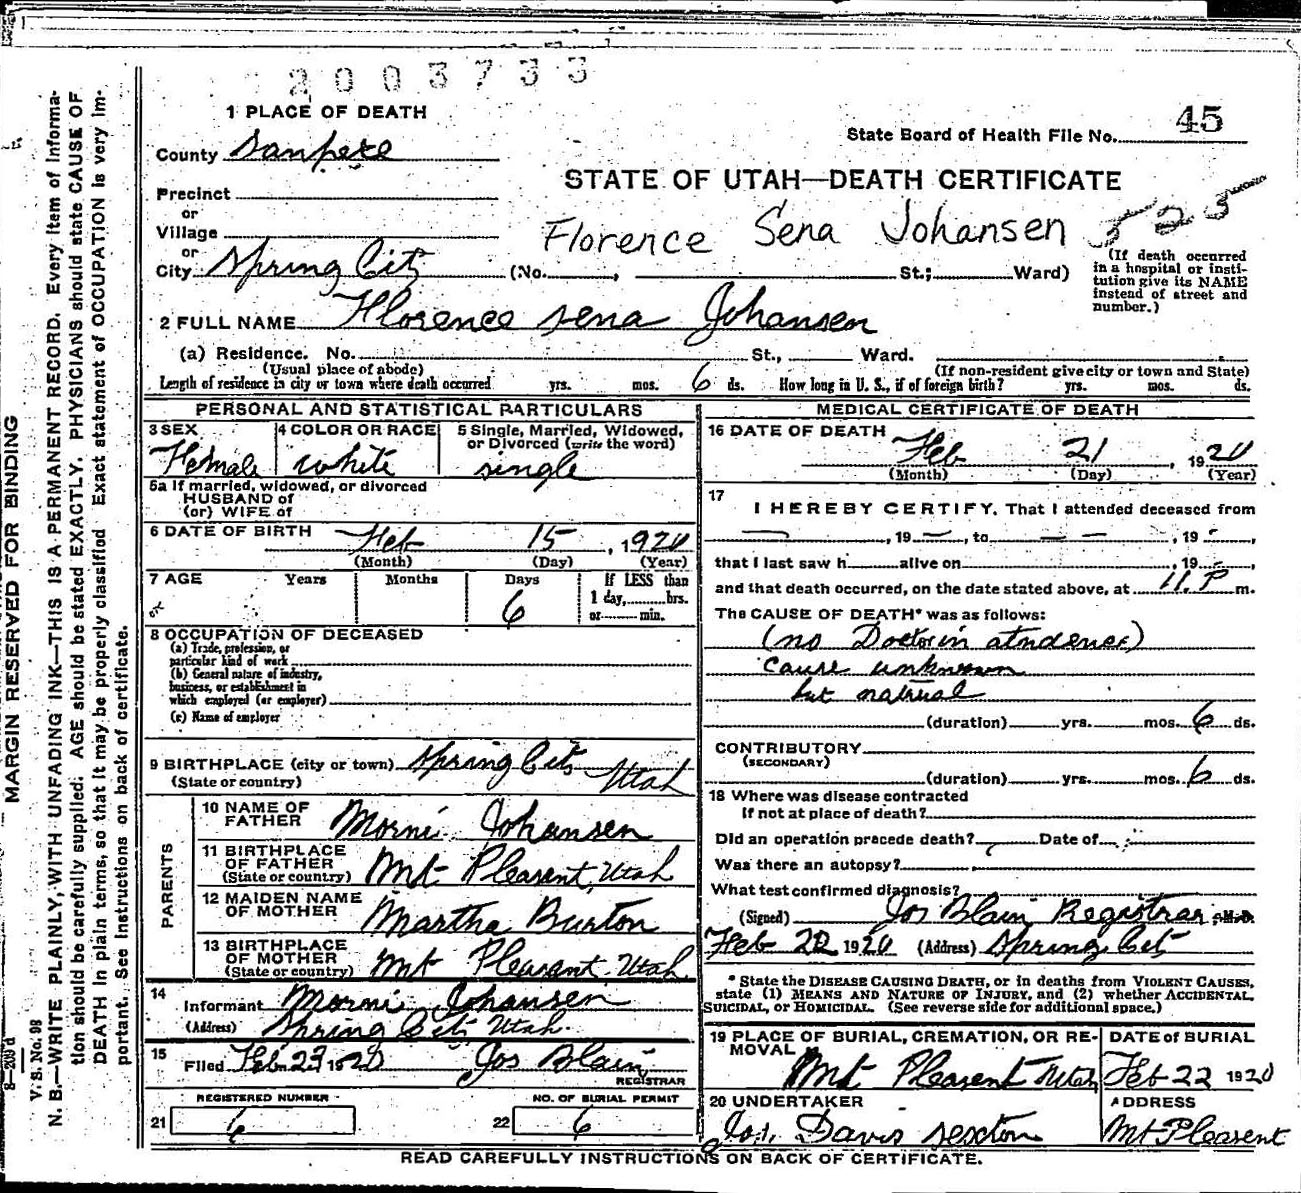 2003733
1 PLACE OF DEATH
State Board of Health File No. 45
County Sanpete
STATE OF UTAH—DEATH CERTIFICATE
Precinct
or
Village
Florence Sena Johansen 525
or
City Spring City (No. , St.; Ward)
(If death occurred
in a hospital or insti-
tution give its NAME
instead of street and
number.)
2 FULL NAME Florence sena Johansen
(a) Residence. No. St., Ward.
(Usual place of abode) (If non-resident give city or town and State)
Length of residence in city or town where death occurred yrs. mos. 6 ds. How long in U. S., if of foreign birth? yrs. mos. ds.
PERSONAL AND STATISTICAL PARTICULARS
3 SEX 4 COLOR OR RACE 5 Single, Married, Widowed,
or Divorced (write the word)
Female white single
5a If married, widowed, or divorced
HUSBAND of
(or) WIFE of
6 DATE OF BIRTH Feb 15, 1920
(Month) (Day) (Year)
7 AGE Years Months Days If LESS than
1 day, hrs.
6 or min.
8 OCCUPATION OF DECEASED
(a) Trade, profession, or
particular kind of work
(b) General nature of industry,
business, or establishment in
which employed (or employer)
(c) Name of employer
9 BIRTHPLACE (city or town) Spring City Utah
(State or country)
PARENTS
10 NAME OF
FATHER Morni Johansen
11 BIRTHPLACE
OF FATHER
(State or country) Mt Pleasent, Utah
12 MAIDEN NAME
OF MOTHER Martha Burton
13 BIRTHPLACE
OF MOTHER
(State or country) Mt Pleasant Utah
14
Informant Morni Johansen
(Address) Spring City, Utah
15
Filed Feb 23 1920 Jos Blain
REGISTRAR
REGISTERED NUMBER NO. OF BURIAL PERMIT
21 6 22 6
MEDICAL CERTIFICATE OF DEATH
16 DATE OF DEATH
Feb 21, 1920
(Month) (Day) (Year)
17
I HEREBY CERTIFY, That I attended deceased from
— , 19 — , to — — , 19 - ,
that I last saw h alive on , 19 - ,
and that death occurred, on the date stated above, at 11. P m.
The CAUSE OF DEATH* was as follows:
(no Doctor in atndence)
cause unknown
but natrual
(duration) yrs. mos. 6 ds.
CONTRIBUTORY
(SECONDARY)
(duration) yrs. mos. 6 ds.
18 Where was disease contracted
If not at place of death?
Did an operation precede death? Date of
Was there an autopsy?
What test confirmed diagnosis?
(Signed) Jos Blain Registrar, M.D.
Feb 22 1920 (Address) Spring City
* State the DISEASE CAUSING DEATH, or in deaths from VIOLENT CAUSES,
state (1) MEANS AND NATURE OF INJURY, and (2) whether ACCIDENTAL,
SUICIDAL, or HOMICIDAL. (See reverse side for additional space.)
19 PLACE OF BURIAL, CREMATION, OR RE-
MOVAL
Mt Pleasent Utah
DATE of BURIAL
Feb 22 1920
20 UNDERTAKER
Jos. Davis sexton
ADDRESS
Mt Pleasent
READ CAREFULLY INSTRUCTIONS ON BACK OF CERTIFICATE.
MARGIN RESERVED FOR BINDING
V. S. No. 98
8—209 d
N. B.—WRITE PLAINLY, WITH UNFADING INK—THIS IS A PERMANENT RECORD. Every item of informa-
tion should be carefully supplied. AGE should be stated EXACTLY. PHYSICIANS should state CAUSE OF
DEATH in plain terms, so that it may be properly classified. Exact statement of OCCUPATION is very im-
portant. See instructions on back of certificate.